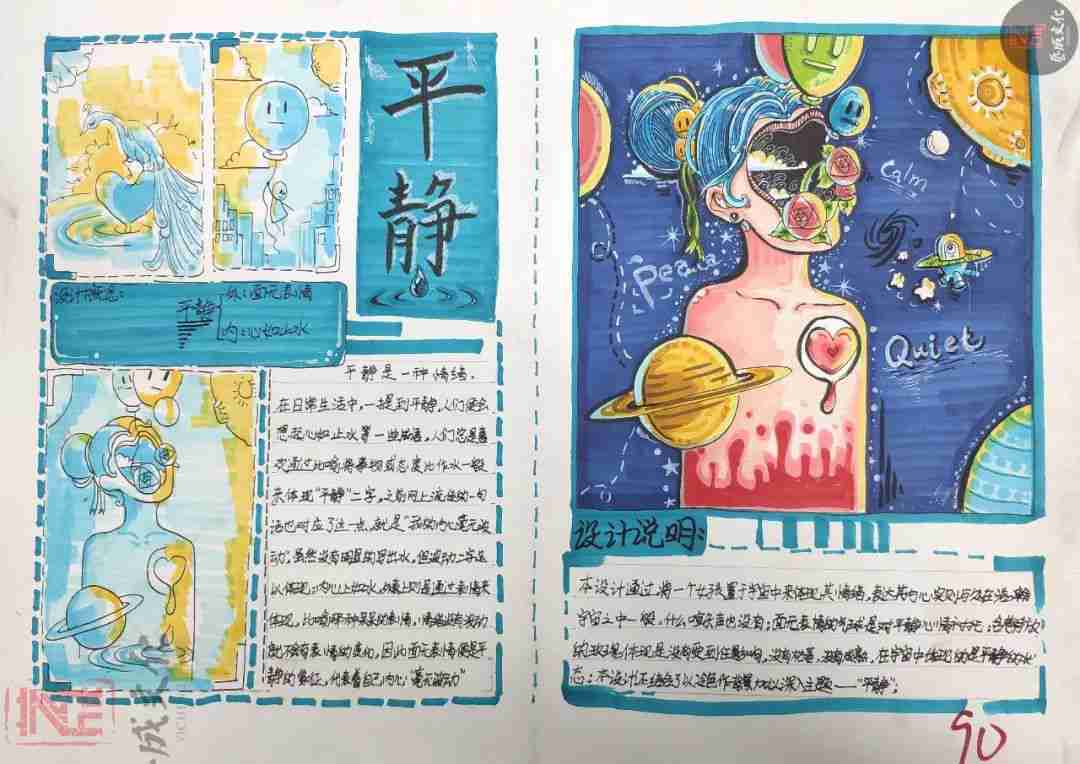 平静
设计概思:
平静
外:面无表情
内:心如止水
平静是一种情绪.
在日常生活中,一提到平静,人们便会
想起心如止水等一些成语,人们总是喜
欢通过比喻将事物或态度比作水一般
来体现"平静"二字,之前网上流传的一句
话也对应了这一点,就是"我的内心毫无波
动".虽然没有明显的写出水,但波动二字足
以体现,内心上如水,
体现,比喻那种呆呆的表情,情绪没有波动
就不会有表情的变化,因此面无表情便是平
静的象征,代表着自己内心"毫无波动"
Calm
Peace
Quiet
设计说明:
本设计通过将一个女孩置于宇宙中来体现其情绪,表达其内心
宇宙之中一般,什么声也没有;面无表情的气球是对平静心情
的玫瑰体现是没有受到任何影响,没有在宇宙中体现的是平静的状
态;本设计以蓝色作背景加以深入主题——"平静";
90